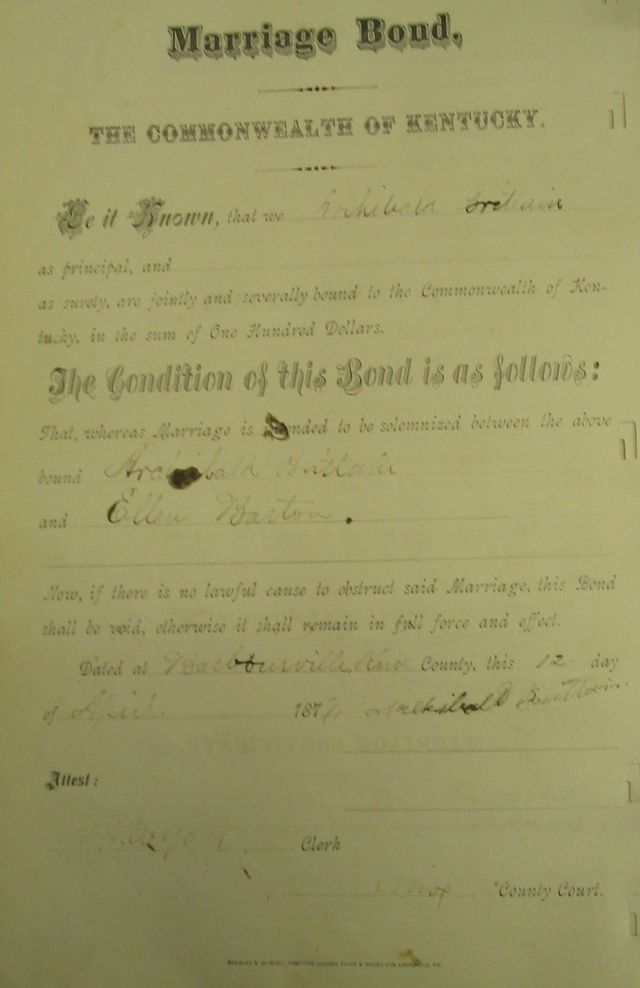 Marriage Bond,
THE COMMONWEALTH OF KENTUCKY.
Be it Known, that we Archibald Brittain
as principal, and
as surety, are jointly and severally bound to the Commonwealth of Ken-
tucky, in the sum of One Hundred Dollars.
The Condition of this Bond is as follows:
That, whereas Marriage is intended to be solemnized between the above
bound Archibald Brittain
and Ellen Barton.
Now, if there is no lawful cause to obstruct said Marriage, this Bond
shall be void, otherwise it shall remain in full force and effect.
Dated at Barbourville, Knox County, this 12 day
of April 187 Archibald Brittain
Attest:
Clerk
Knox County Court.